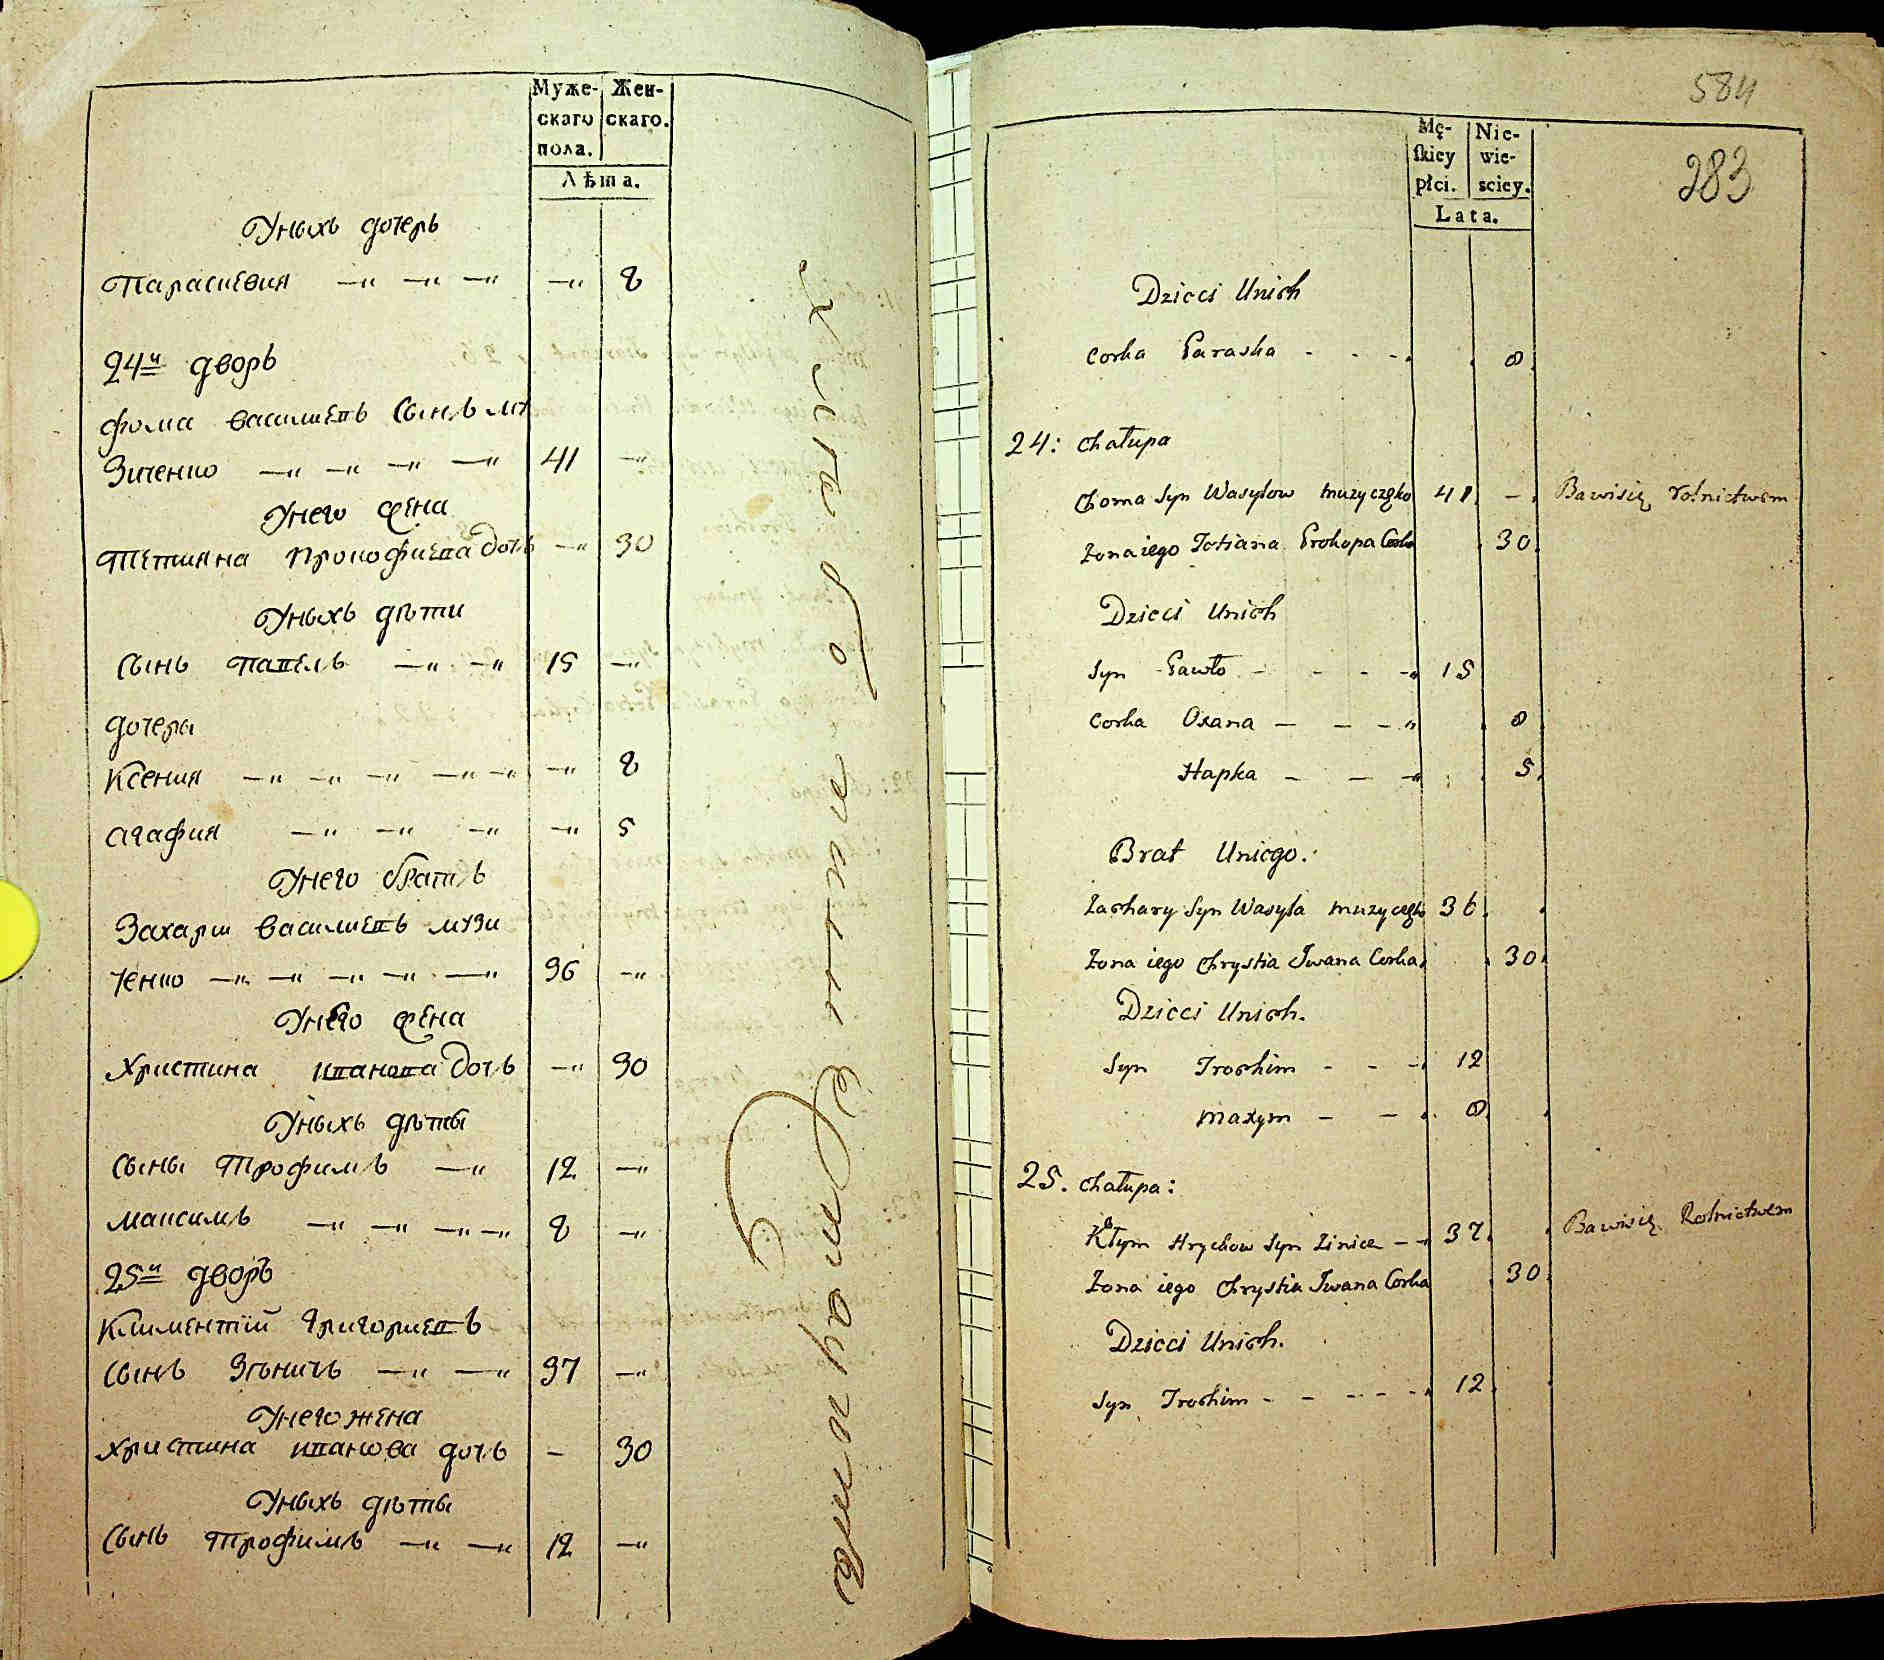 Муже- Жен-
скаго скаго.
пола.
Лѣта.
Унихъ дочерь
Параскевия —„ —„ —„ —„ 8
24й дворъ
фома василиевъ сынъ му
зиченко —„ —„ —„ —„ 41 —„
Унего жена
Тетияна прокофиева дочь —„ 30
Унихъ дѣти
Сынъ павелъ —„ —„ 15 —„
дочери
Ксения —„ —„ —„ —„ —„ —„ 8
агафия —„ —„ —„ —„ 5
Унего братъ
Захари василиевъ музи
ченко —„ —„ —„ —„ —„ 36 —„
Унего жена
христина иванова дочь —„ 30
Унихъ дѣты
Сыны Трофимъ —„ 12 —„
максимъ —„ —„ —„ —„ 8 —„
25й дворъ
Климентий григориевъ
сынъ Згѣничъ —„ —„ 37 —„
Унего жена
христина иванова дочь – 30
Унихъ дѣты
Сынъ Трофимъ —„ —„ 12 —„
584
283
Mę- Nie-
skiey wie-
płci. sciey.
Lata.
Dzieci Unich
Corka Paraska - - - 8
24: chałupa
Choma Syn Wasylow muzyczęko 41 – Bawisię rolnictwem
Zona iego Tetiana Prokopa Corka 30
Dzieci Unich
Syn Pawło - - - - 15
Corka Oxana – – – „ 8
Hapka – – – „ 5
Brat Uniego.
Zachary Syn Wasyla muzyczęko 36
Zona iego Chrystia Iwana Corka 30
Dzieci Unich.
Syn Trochim - - - 12
maxym – – 8
25. chałupa:
Kłym Hryckow Syn Zinicz – – 37 Bawisię Rolnictwem
Zona iego Chrystia Iwana Corka 30
Dzieci Unich.
Syn Trochim - - - - - 12